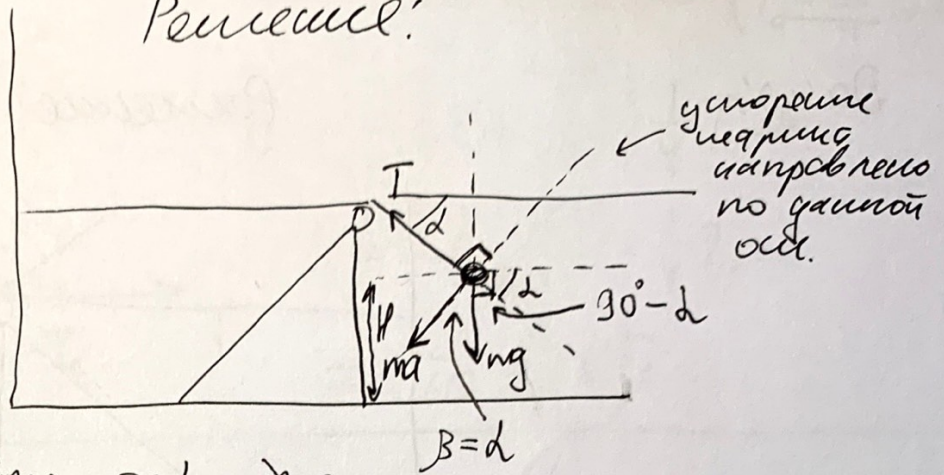 Решение!
ускорение
шарика
направлено
по данной
оси.
T
α
α
90°-α
H
ma
mg
β=α